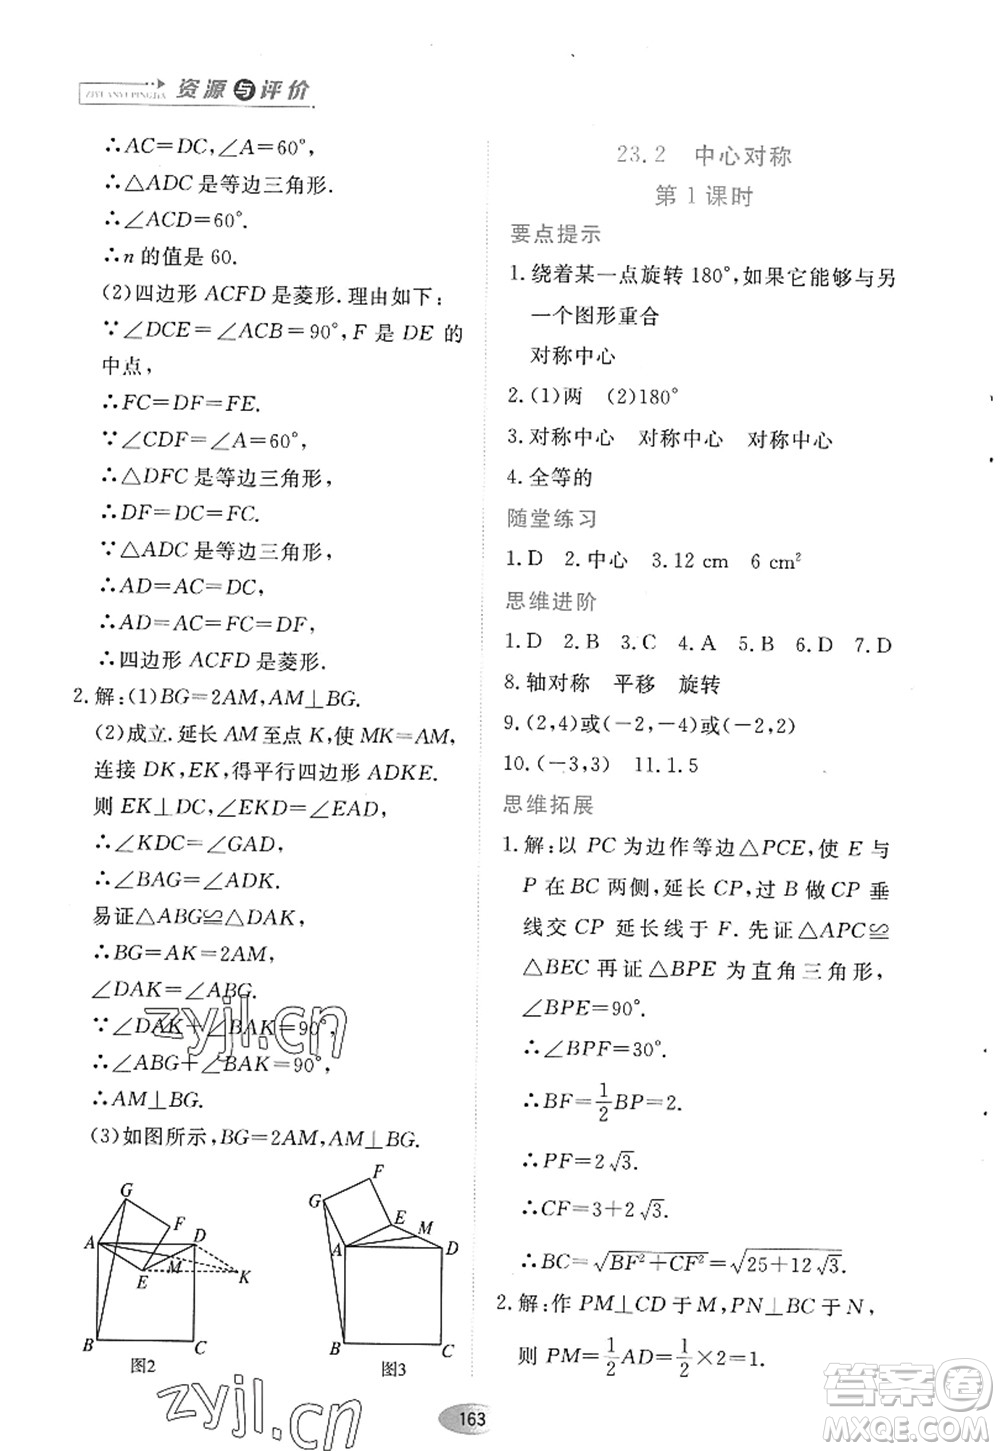 ZIYUANYUPINGJIA 资源与评价
∴AC=DC,∠A=60°,
∴△ADC 是等边三角形.
∴∠ACD=60°.
∴n 的值是 60.
(2)四边形 ACFD 是菱形.理由如下:
∵∠DCE=∠ACB=90°,F 是 DE 的
中点,
∴FC=DF=FE.
∵∠CDF=∠A=60°,
∴△DFC 是等边三角形.
∴DF=DC=FC.
∵△ADC 是等边三角形,
∴AD=AC=DC,
∴AD=AC=FC=DF,
∴四边形 ACFD 是菱形.
2.解:(1)BG=2AM,AM⊥BG.
(2)成立.延长 AM 至点 K,使 MK=AM,
连接 DK,EK,得平行四边形 ADKE.
则 EK⊥DC,∠EKD=∠EAD,
∴∠KDC=∠GAD,
∴∠BAG=∠ADK.
易证△ABG≌△DAK,
∴BG=AK=2AM,
∠DAK=∠ABG.
∵∠DAK+∠BAK=90°,
∴∠ABG+∠BAK=90°,
∴AM⊥BG.
(3)如图所示,BG=2AM,AM⊥BG.
G F A D M E K B C
图2
F G E M A D B C
图3
23.2 中心对称
第 1 课时
要点提示
1.绕着某一点旋转 180°,如果它能够与另
一个图形重合
对称中心
2.(1)两 (2)180°
3.对称中心 对称中心 对称中心
4.全等的
随堂练习
1.D 2.中心 3.12 cm 6 cm²
思维进阶
1.D 2.B 3.C 4.A 5.B 6.D 7.D
8.轴对称 平移 旋转
9.(2,4)或(-2,-4)或(-2,2)
10.(-3,3) 11.1.5
思维拓展
1.解:以 PC 为边作等边△PCE,使 E 与
P 在 BC 两侧,延长 CP,过 B 做 CP 垂
线交 CP 延长线于 F.先证△APC≌
△BEC 再证△BPE 为直角三角形,
∠BPE=90°.
∴∠BPF=30°.
∴BF=1/2BP=2.
∴PF=2√3.
∴CF=3+2√3.
∴BC=√(BF²+CF²)=√(25+12√3).
2.解:作 PM⊥CD 于 M,PN⊥BC 于 N,
则 PM=1/2AD=1/2×2=1.
163
zyjl.cn
zyjl.cn
答案圈
MXQE.COM